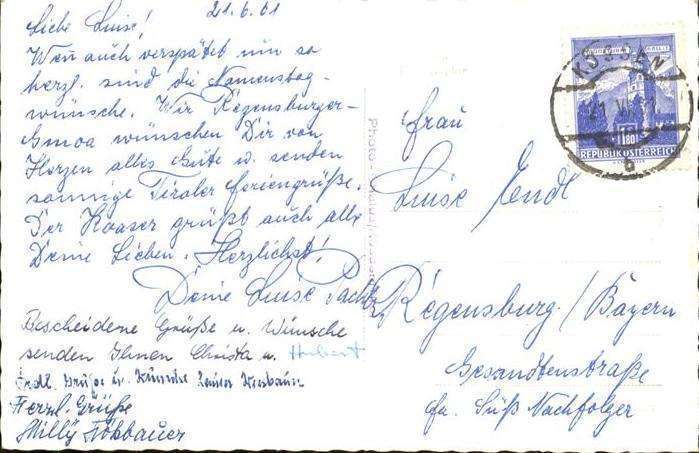 21.6.61
Liebe Luise!
Wenn auch verspätet um so
herzl. sind die Namenstag-
wünsche. Wir Regensburger-
Gmoa wünschen Dir von
Herzen alles Gute u. senden
sonnige Tiroler Feriengrüße.
Der Kaaser grüßt auch alle
Deine Lieben. Herzlichst!
Deine Luise
Bescheidene Grüße u. Wünsche
senden Ihnen Christa u. Hubert
Grüße u. Wünsche
Herzl. Grüße
Milly
Photo
Frau
Luise Endl
Regensburg / Bayern
Gesandtenstraße
Fa. Süß Nachfolger
KÖSSEN
21. VI.
b
1.80
REPUBLIK ÖSTERREICH